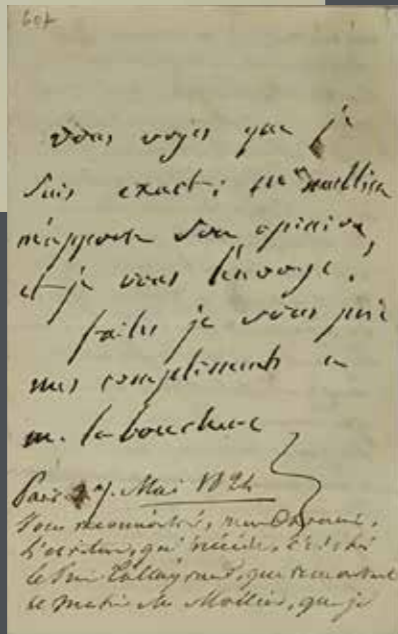 607
vous voyés que je
suis exact; Mr mollien
m'apporte son opinion,
et je vous l'envoye.
faites je vous prie
mes compliments a
m. labouchere
Paris 27. Mai 1824
Vous reconnoitrés, mon
L'écriture, qui précéde, c'est
le Prince Talleyrand, que
ce matin Mr Mollien, que je